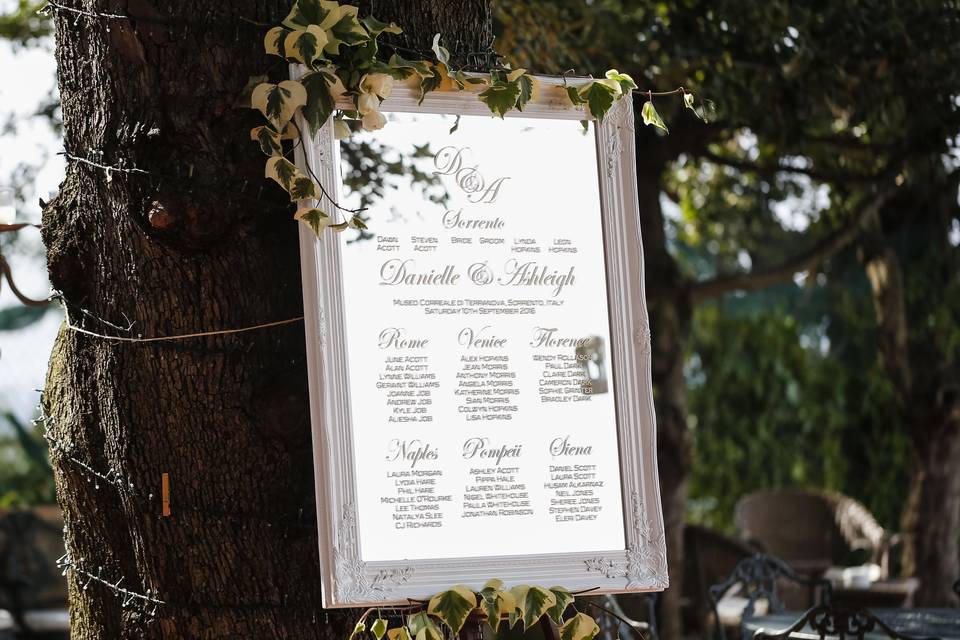 D&A
Sorrento
DAWN ACOTT STEVEN ACOTT BRIDE GROOM LYNDA HOPKINS LEON HOPKINS
Danielle & Ashleigh
MUSEO CORREALE DI TERRANOVA, SORRENTO, ITALY
SATURDAY 10TH SEPTEMBER 2016
Rome
JUNE ACOTT
ALAN ACOTT
LYNNE WILLIAMS
GERAINT WILLIAMS
JOANNE JOB
ANDREW JOB
KYLE JOB
ALIESHA JOB
Venice
ALEX HOPKINS
JEAN MORRIS
ANTHONY MORRIS
ANGELA MORRIS
KATHERINE MORRIS
SIAN MORRIS
COLWYN HOPKINS
LISA HOPKINS
Florence
WENDY
PAUL DARK
CLAIRE DARK
CAMERON DARK
SOPHIE GRINTER
BRADLEY DARK
Naples
LAURA MORGAN
LYDIA HARE
PHIL HARE
MICHELLE O'ROURKE
LEE THOMAS
NATALYA SLEE
CJ RICHARDS
Pompeii
ASHLEY ACOTT
PIPPA HALE
LAUREN WILLIAMS
NIGEL WHITEHOUSE
PAULA WHITEHOUSE
JONATHAN ROBINSON
Siena
DANIEL SCOTT
LAURA SCOTT
HUSAM ALKARNAZ
NEIL JONES
SHEREE JONES
STEPHEN DAVEY
ELERI DAVEY